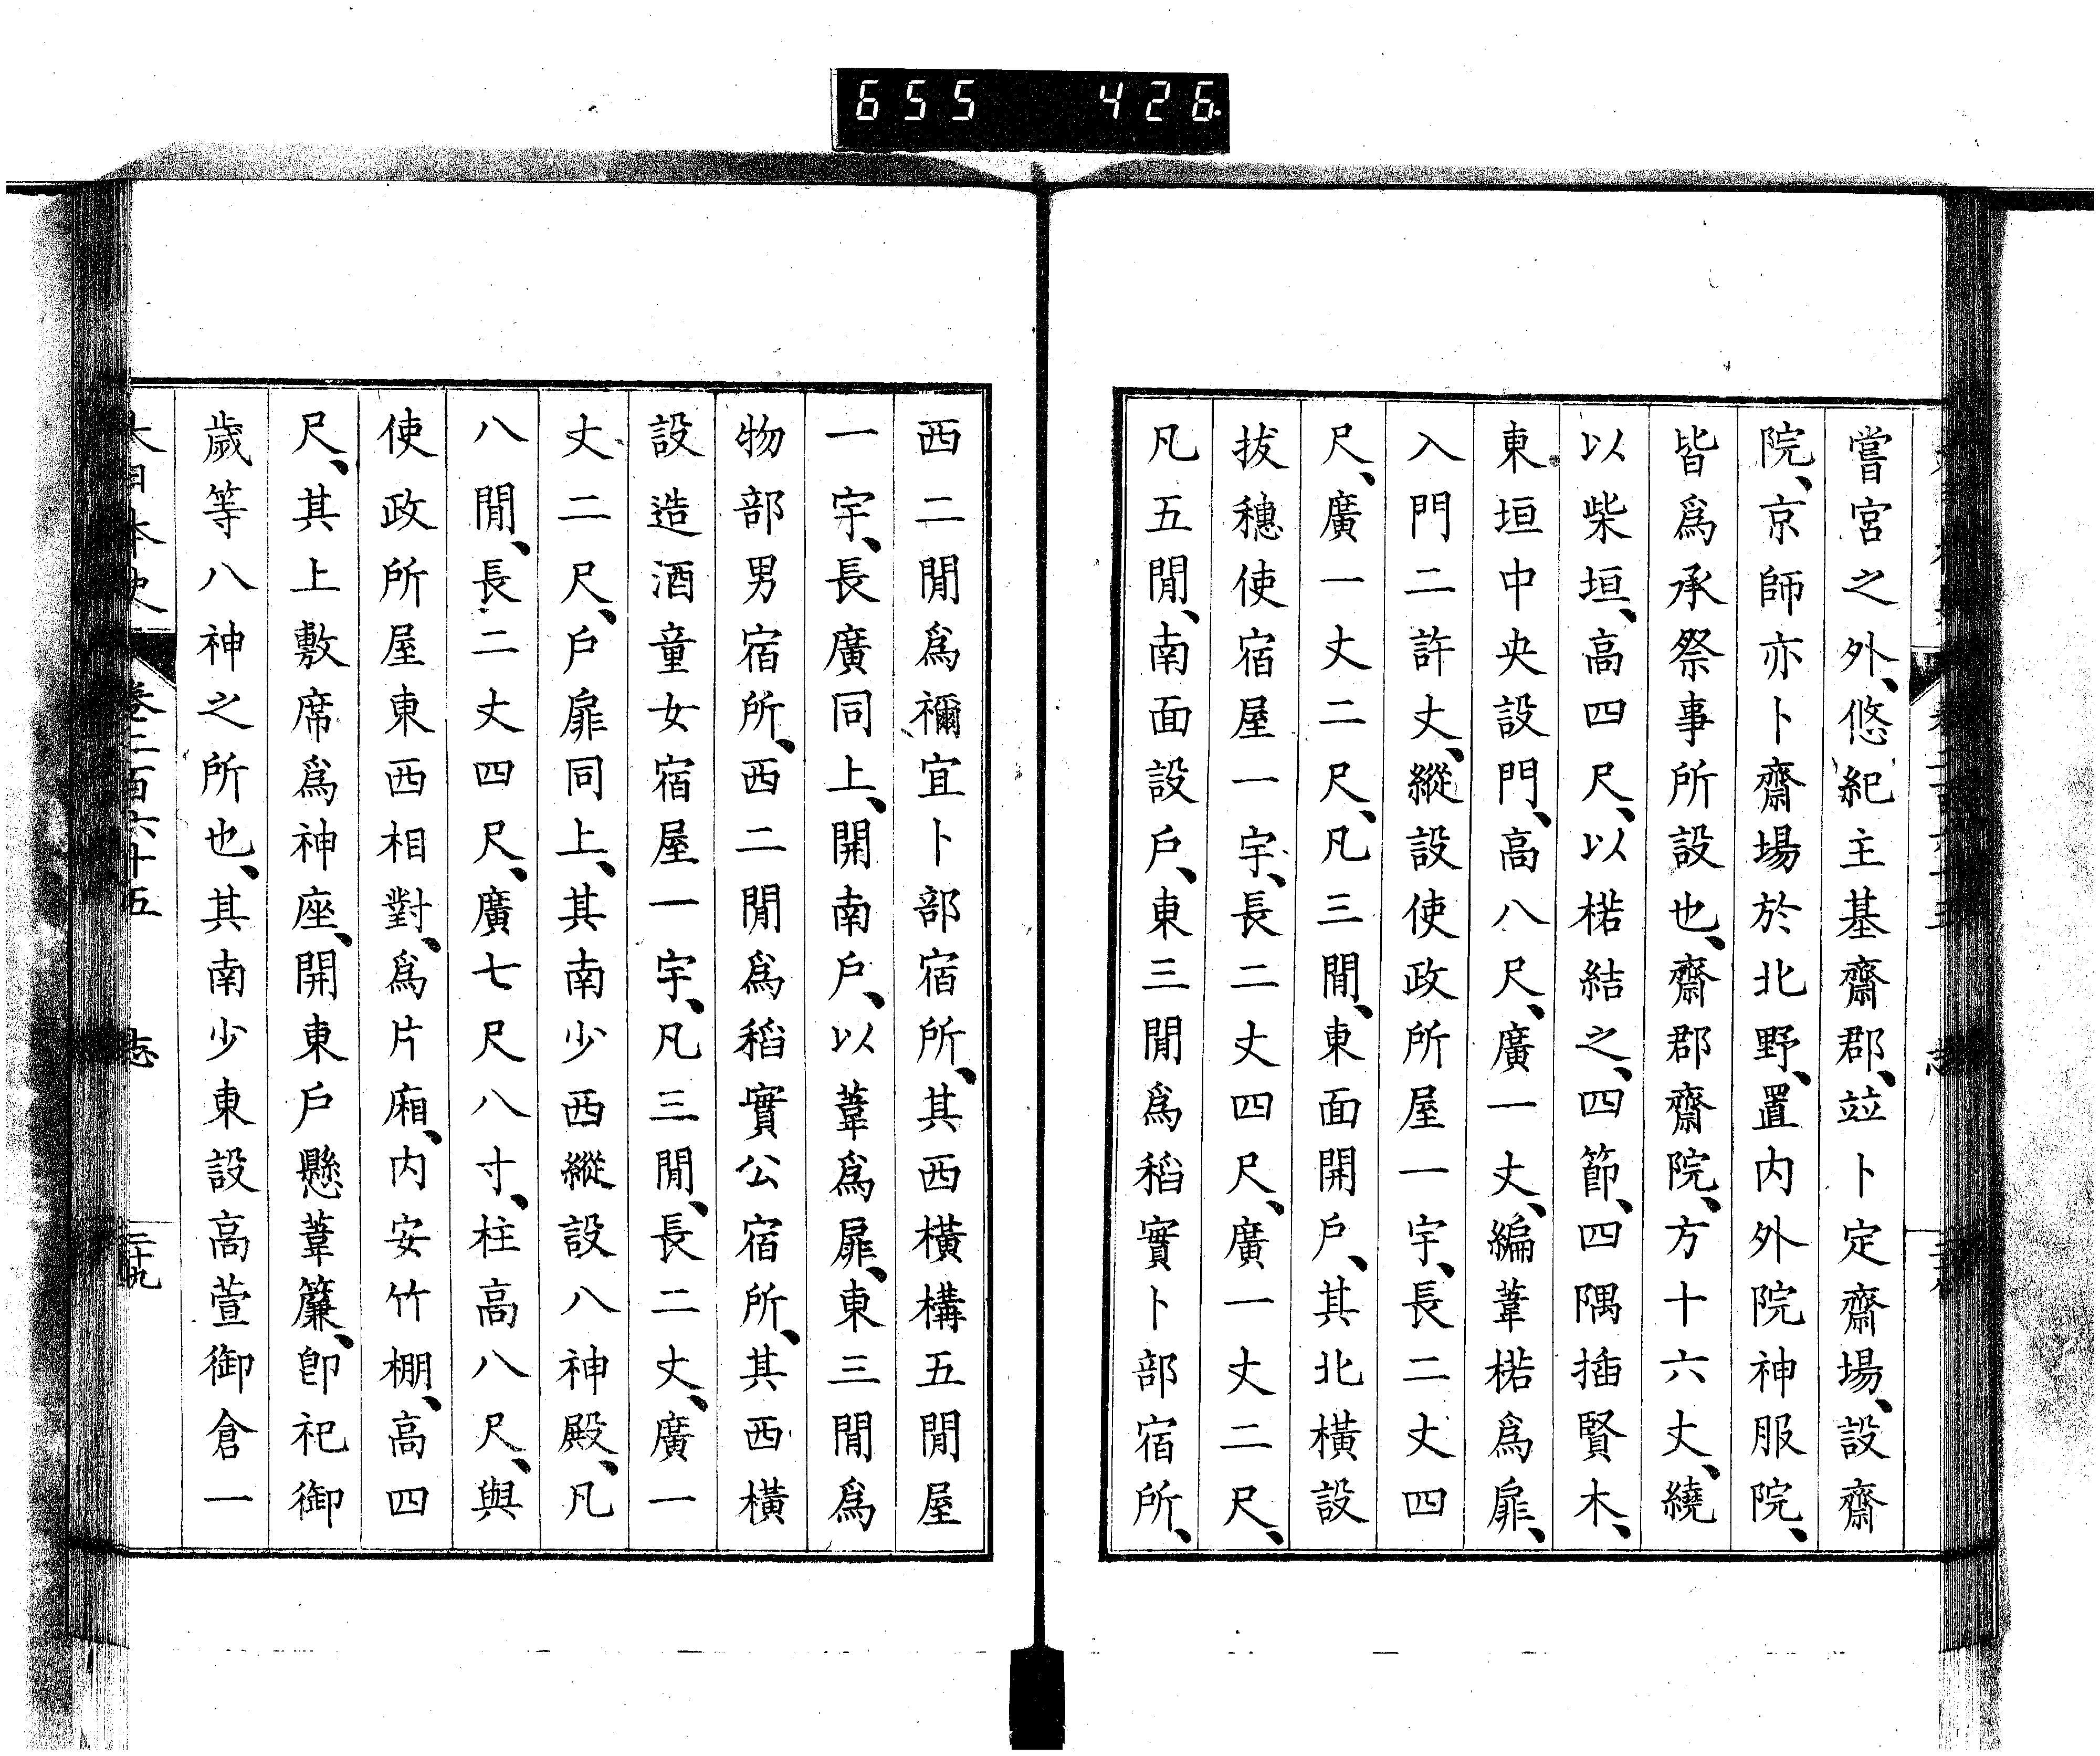 655 426
嘗宮之外、悠紀主基齋郡、竝卜定齋場、設齋
院、京師亦卜齋場於北野、置内外院神服院、
皆爲承祭事所設也、齋郡齋院、方十六丈、繞
以柴垣、高四尺、以楉結之、四節、四隅插賢木、
東垣中央設門、高八尺、廣一丈、編葦楉爲扉、
入門二許丈、縱設使政所屋一宇、長二丈四
尺、廣一丈二尺、凡三閒、東面開戶、其北橫設
拔穗使宿屋一宇、長二丈四尺、廣一丈二尺、
凡五閒、南面設戶、東三閒爲稻實卜部宿所、
西二閒爲禰宜卜部宿所、其西橫構五閒屋
一宇、長廣同上、開南戶、以葦爲扉、東三閒爲
物部男宿所、西二閒爲稻實公宿所、其西橫
設造酒童女宿屋一宇、凡三閒、長二丈、廣一
丈二尺、戶扉同上、其南少西縱設八神殿、凡
八閒、長二丈四尺、廣七尺八寸、柱高八尺、與
使政所屋東西相對、爲片廂、内安竹棚、高四
尺、其上敷席爲神座、開東戶懸葦簾、卽祀御
歲等八神之所也、其南少東設高萱御倉一
大日本史 卷二百六十五 志 二十九